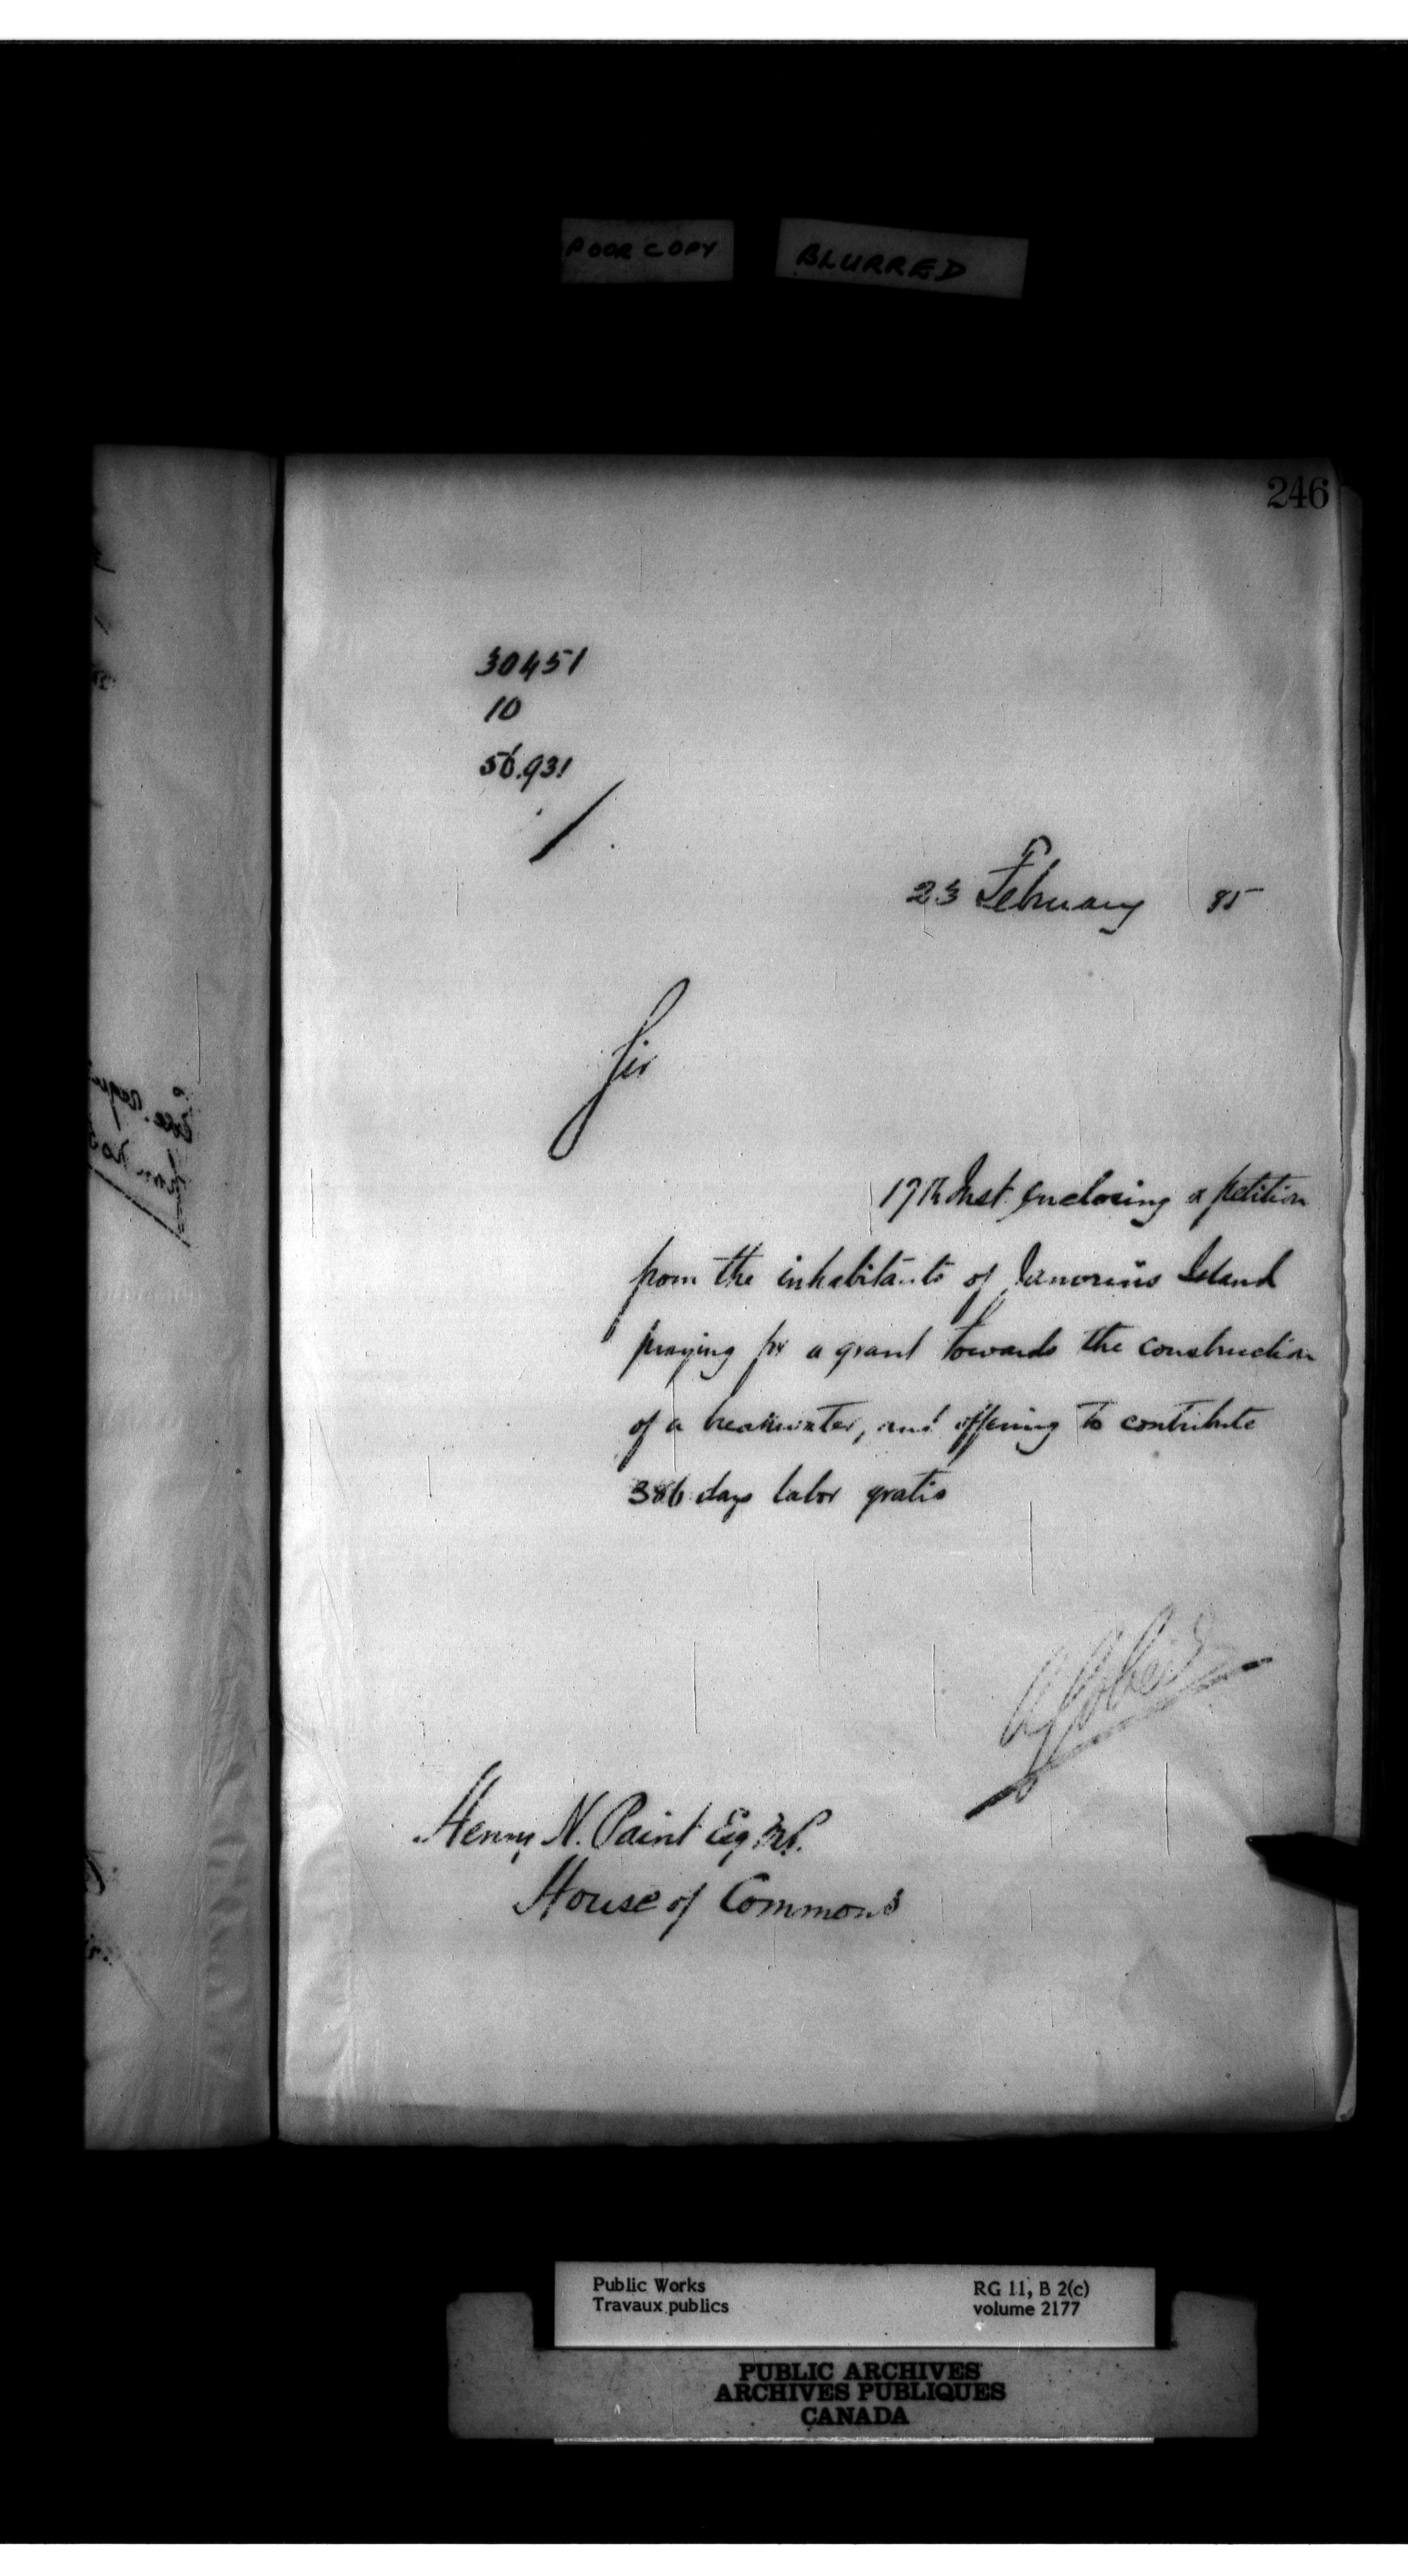 POOR COPY BLURRED
246
30451
10
56.931
23 February 85
Sir
17th Inst. enclosing a petition
from the inhabitants of Island
praying for a grant towards the construction
of a breakwater, and offering to contribute
386 days labor gratis
Henry N. Paint Esq M.P.
House of Commons
Public Works
Travaux publics
RG 11, B 2(c)
volume 2177
PUBLIC ARCHIVES
ARCHIVES PUBLIQUES
CANADA